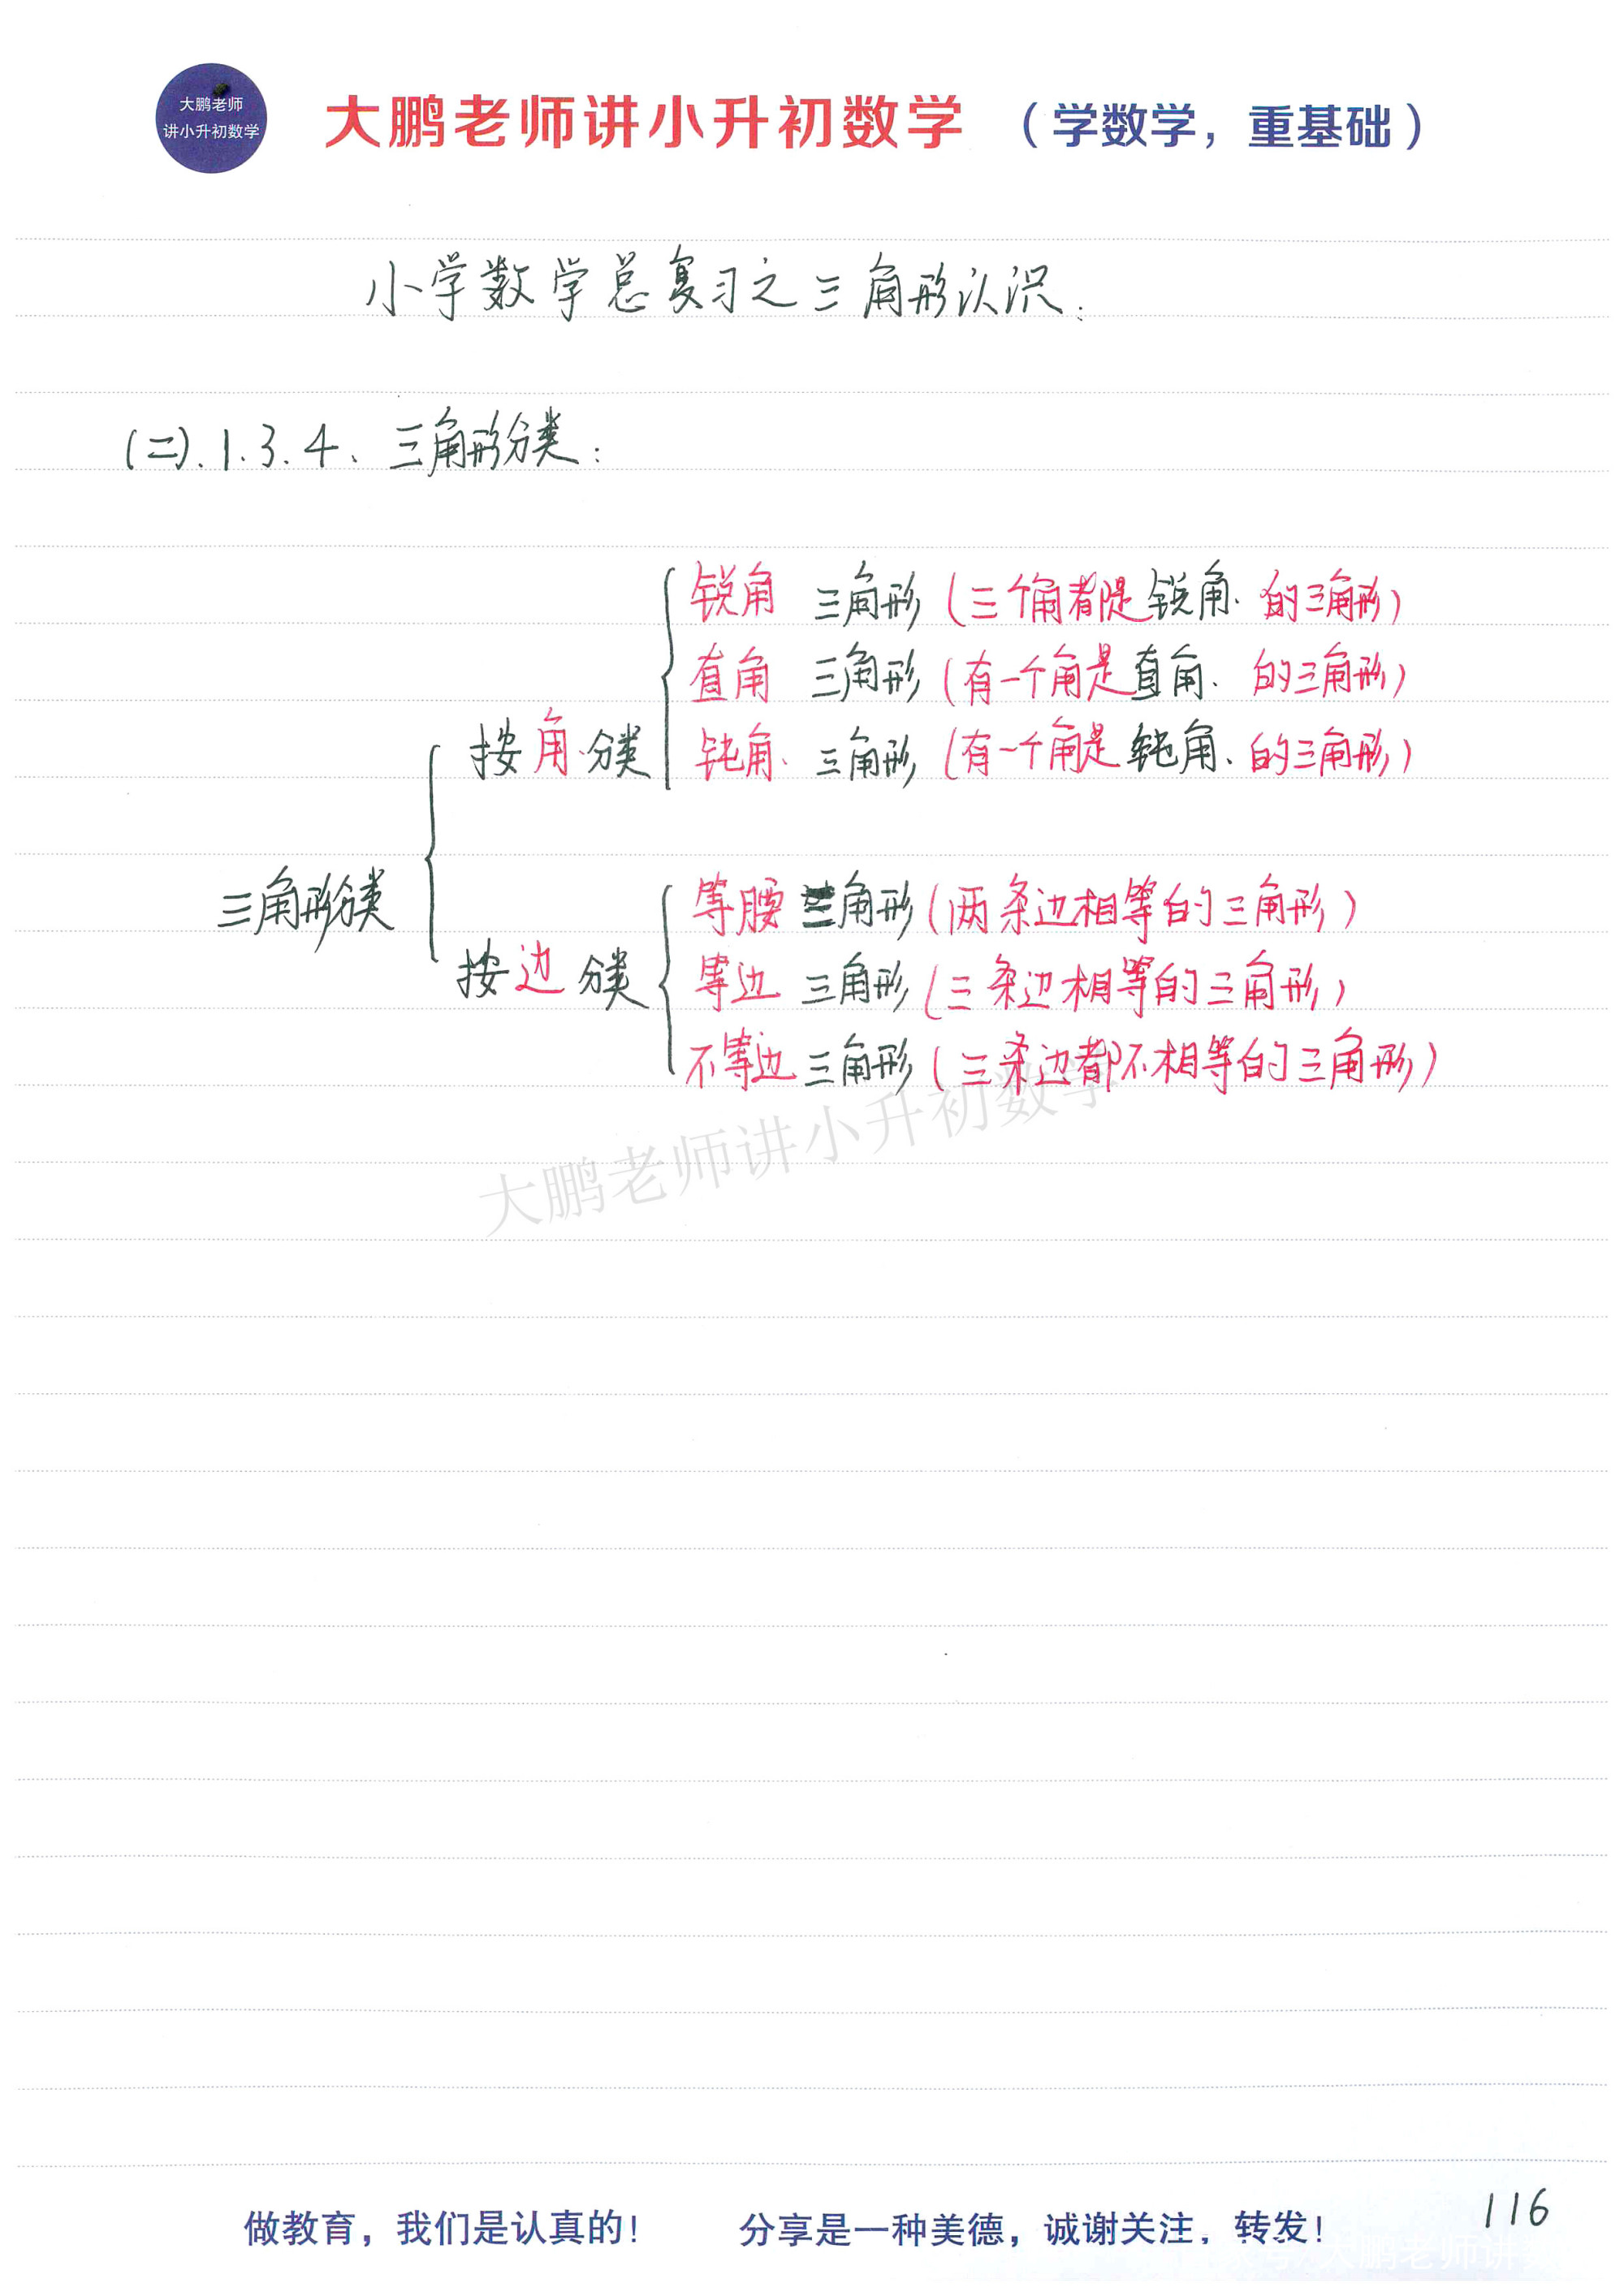 大鹏老师
讲小升初数学
大鹏老师讲小升初数学 （学数学，重基础）
小学数学总复习之三角形认识:
(二).1.3.4、三角形分类:
锐角 三角形 (三个角都是锐角的三角形)
直角 三角形 (有一个角是直角的三角形)
按角分类 钝角 三角形 (有一个角是钝角的三角形)
三角形分类 等腰三角形 (两条边相等的三角形)
按边分类 等边 三角形 (三条边相等的三角形)
不等边三角形 (三条边都不相等的三角形)
大鹏老师讲小升初数学
做教育，我们是认真的！ 分享是一种美德，诚谢关注，转发！
116
大鹏老师讲